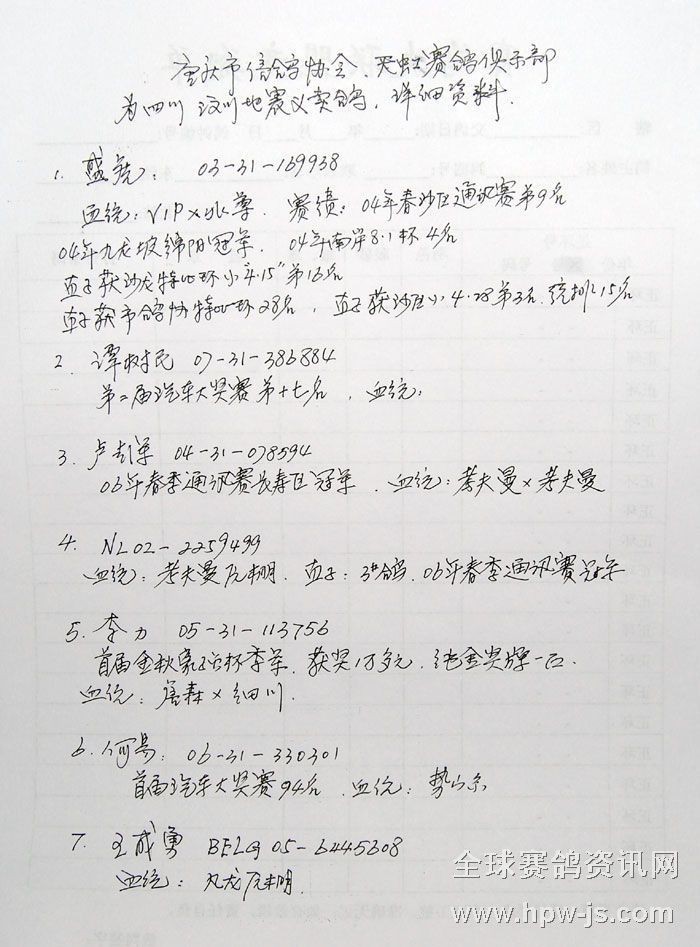 重庆市信鸽协会 天虹赛鸽俱乐部
为四川汶川地震义卖鸽,详细资料.
1. 盛毓: 03-31-169938
血统:VIP×水尊. 赛绩:04年春沙区通讯赛第9名
04年九龙坡绵阳冠军. 04年南岸8.1杯4名
直子获沙龙特比环小"4.15"第16名
直子获市鸽协特比环28名, 直子获沙区小4.28第3名.统排15名
2. 谭树民 07-31-386884
第二届汽车大奖赛第十七名, 血统:
3. 卢 军 04-31-078594
06年春季通讯赛长寿区冠军. 血统:考夫曼×考夫曼
4. NL02-2259499
血统:考夫曼 直子:3#鸽.06年春季通讯赛冠军
5. 李力 05-31-113756
首届金秋 杯季军.获奖1万多元.纯金奖牌一
血统: 森×细川.
6. 何易: 06-31-330301
首届汽车大奖赛94名. 血统:势山系
7. 王成勇 BELG 05-6445608
血统:
全球赛鸽资讯网
www.hpw-js.com